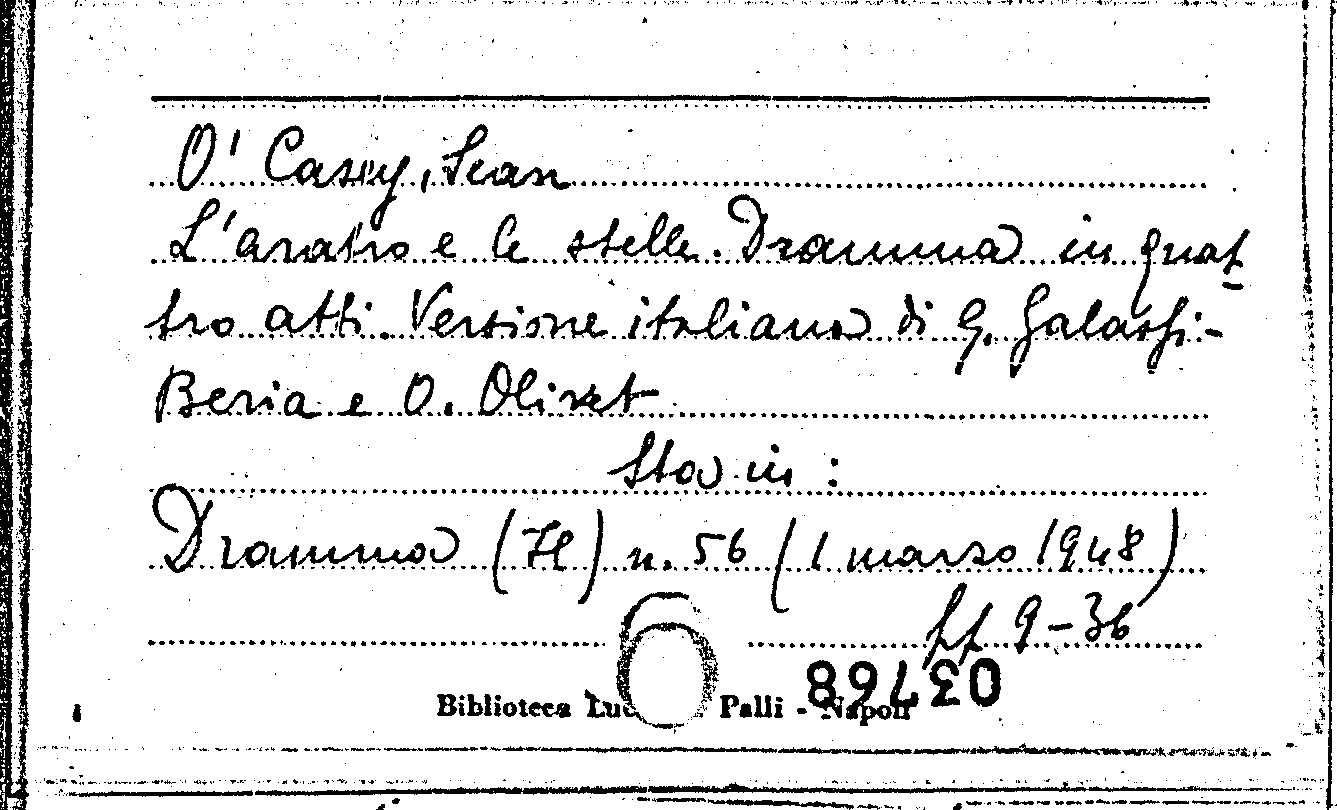 O' Casey, Sean
L'aratro e le stelle. Dramma in quat-
tro atti. Versione italiana di G. Galassi-
Beria e O. Olivet
Sta in:
Dramma (Il) n. 56 (1 marzo 1948)
pp 9-36
03768
Biblioteca Palli - Napoli